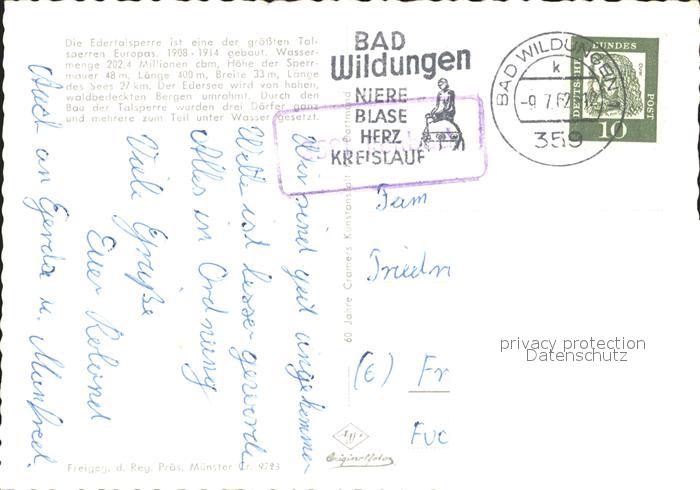 Die Edertalsperre ist eine der größten Tal-
sperren Europas. 1908-1914 gebaut. Wasser-
menge 202,4 Millionen cbm, Höhe der Sperr-
mauer 48 m, Länge 400 m, Breite 33 m, Länge
des Sees 27 km. Der Edersee wird von hohen,
waldbedeckten Bergen umrahmt. Durch den
Bau der Talsperre wurden drei Dörfer ganz
und mehrere zum Teil unter Wasser gesetzt.
BAD
Wildungen
NIERE
BLASE
HERZ
KREISLAUF
BAD WILDUNGEN 1
k
-9.7.62
359
DEUTSCHE
BUNDES
POST
10
Wir sind gut angekommen
Wetter ist besser geworden
Alles in Ordnung
Viele Grüße
Euer Roland
Auch an Gerda u. Manfred.
60 Jahre Cramers Kunstanstalt Dortmund
Fam
Friedri
(E) Fr
Fuc
privacy protection
Datenschutz
Originalfoto
Freigeg. d. Reg. Präs. Münster Cr. 9723